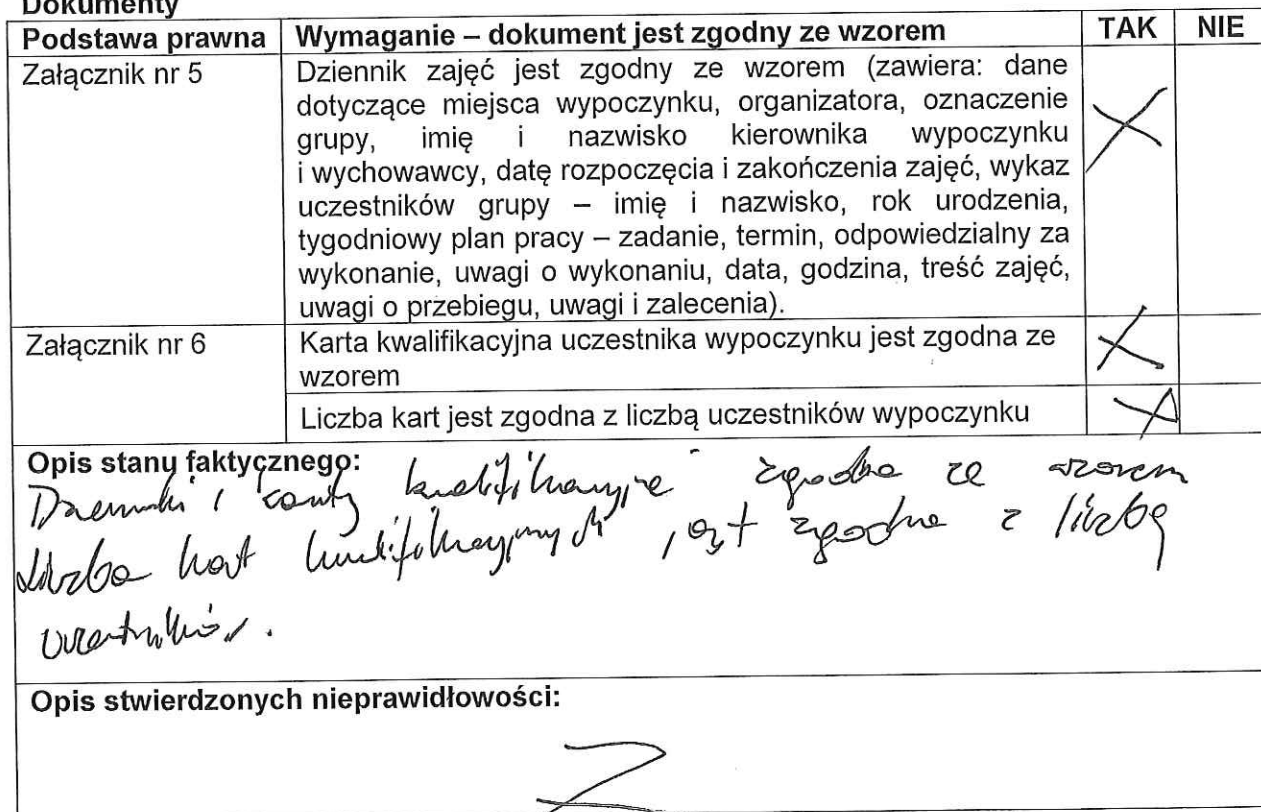 Dokumenty
Podstawa prawna Wymaganie – dokument jest zgodny ze wzorem TAK NIE
Załącznik nr 5 Dziennik zajęć jest zgodny ze wzorem (zawiera: dane
dotyczące miejsca wypoczynku, organizatora, oznaczenie
grupy, imię i nazwisko kierownika wypoczynku
i wychowawcy, datę rozpoczęcia i zakończenia zajęć, wykaz
uczestników grupy – imię i nazwisko, rok urodzenia,
tygodniowy plan pracy – zadanie, termin, odpowiedzialny za
wykonanie, uwagi o wykonaniu, data, godzina, treść zajęć,
uwagi o przebiegu, uwagi i zalecenia).
Załącznik nr 6 Karta kwalifikacyjna uczestnika wypoczynku jest zgodna ze
wzorem
Liczba kart jest zgodna z liczbą uczestników wypoczynku
Opis stanu faktycznego:
Dzienniki i karty kwalifikacyjne zgodne ze wzorem
Liczba kart kwalifikacyjnych jest zgodna z liczbą
uczestników.
Opis stwierdzonych nieprawidłowości: